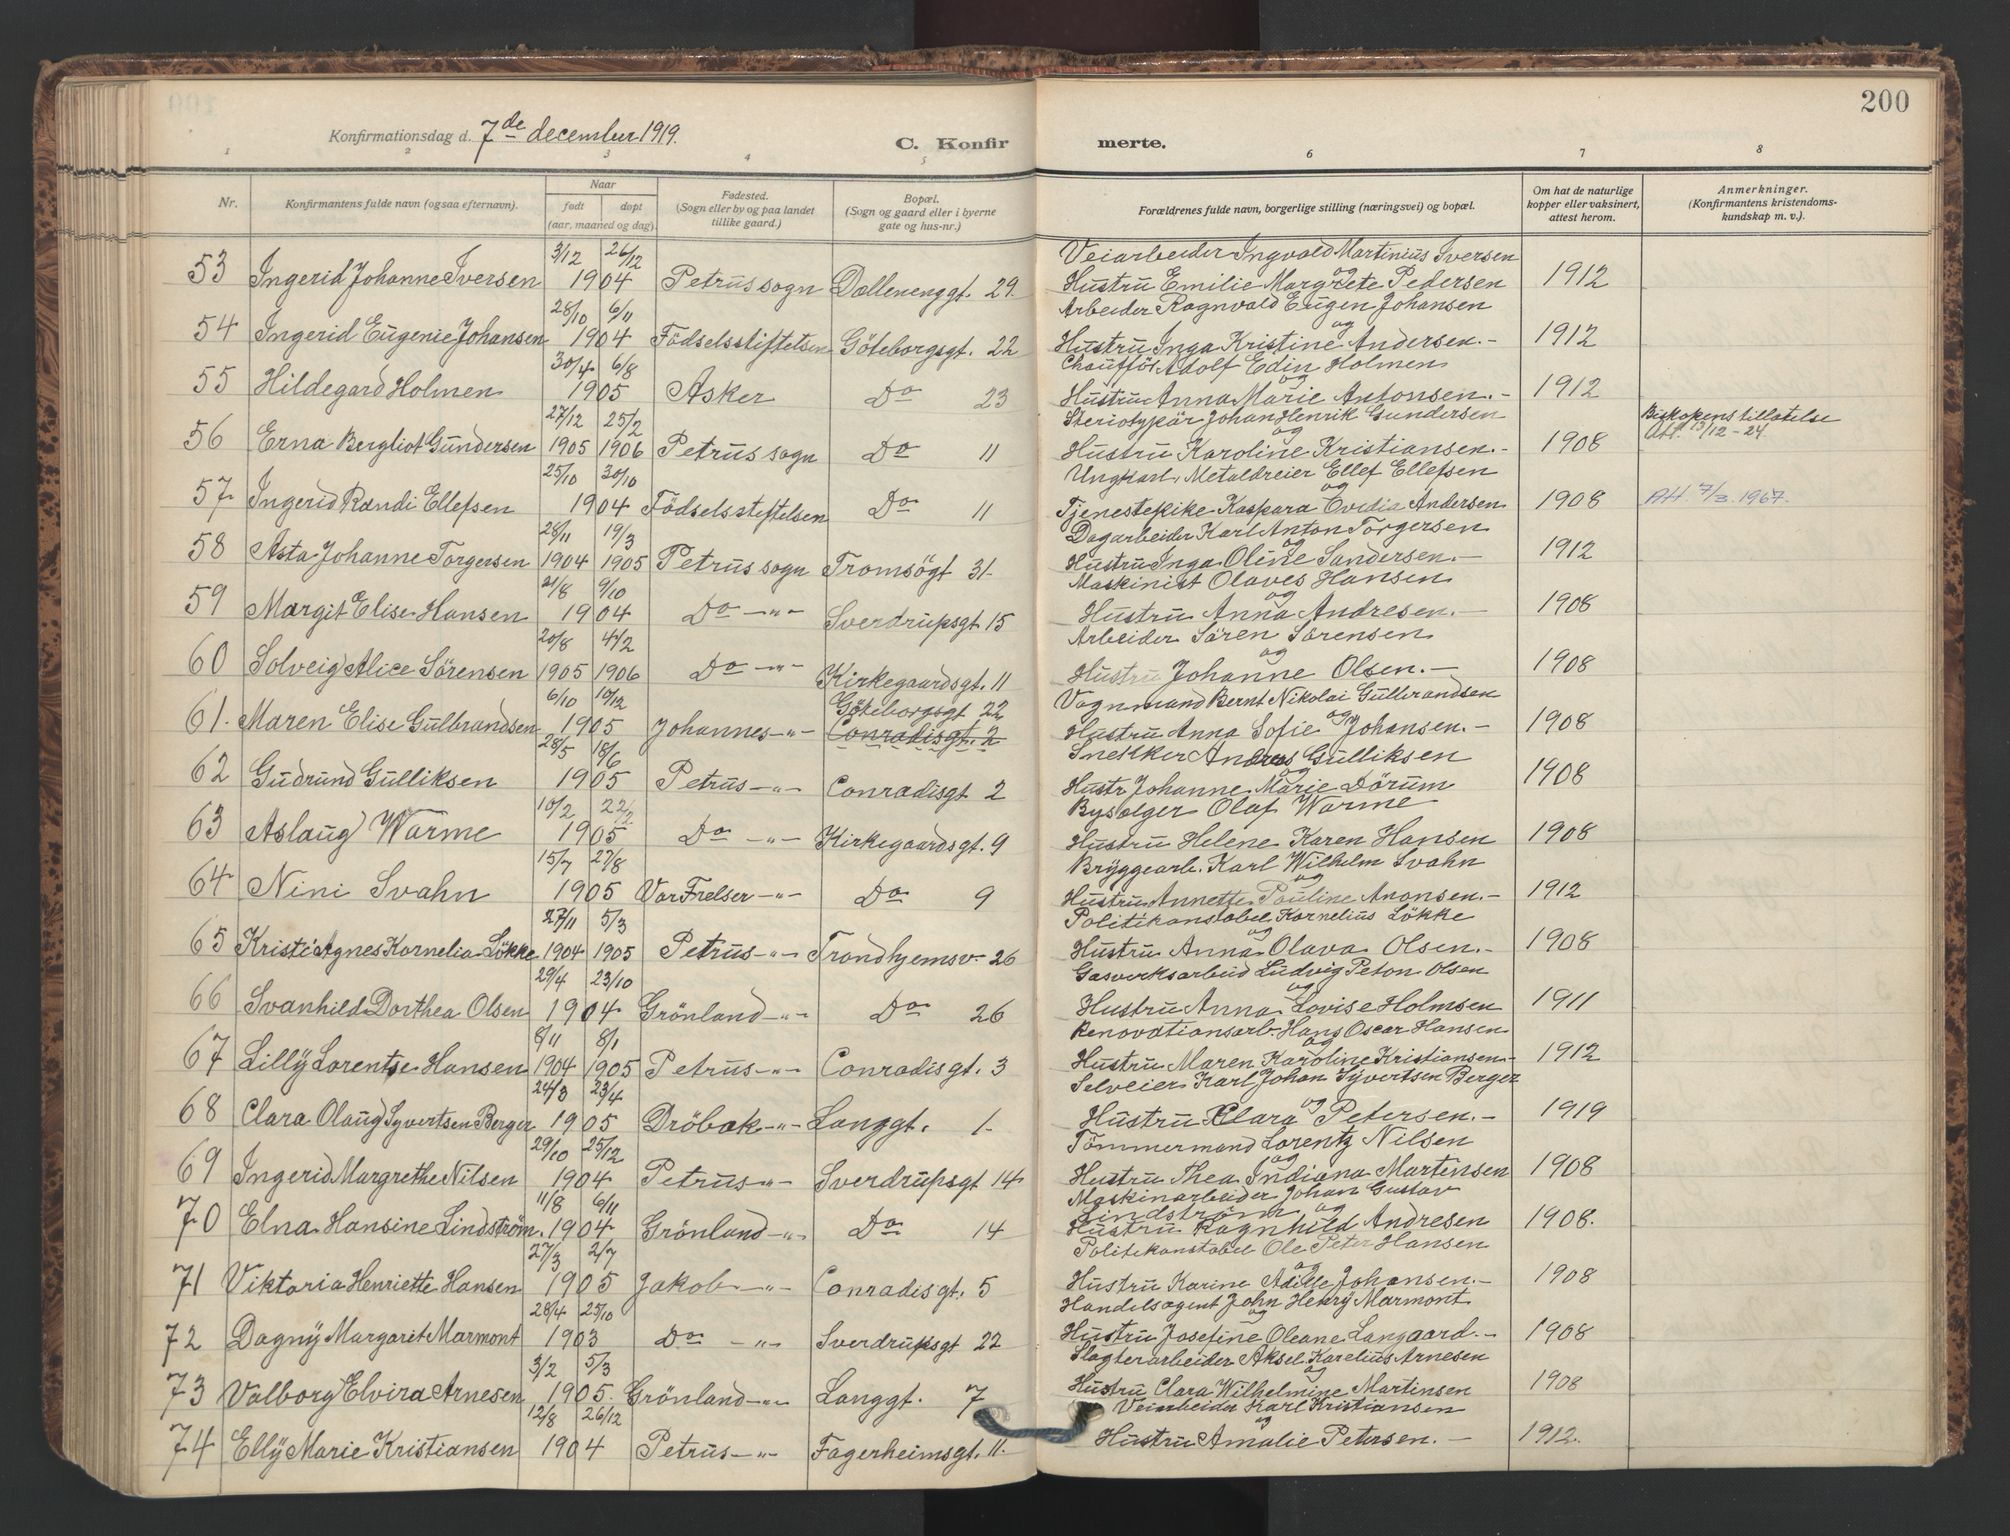 200
Konfirmationsdag d. 7de december 1919.
C. Konfirmerte.
1 2 3 4 5 6 7 8
Nr. Konfirmantens fulde navn (ogsaa efternavn). Naar født døpt (aar, maaned og dag). Fødested. (Sogn eller by og paa landet tillike gaard.) Bopæl. (Sogn og gaard eller i byerne gate og hus-nr.) Forældrenes fulde navn, borgerlige stilling (næringsvei) og bopæl. Om hat de naturlige kopper eller vaksinert, attest herom. Anmerkninger. (Konfirmantens kristendomskundskap m. v.).
3/12 26/12 Veiarbeider Ingvald Martinius Iversen
53 Ingerid Johanne Iversen 1904 Petrus sogn Dællenenggt. 29. og Hustru Emilie Margrete Pedersen 1912
28/10 6/11 Arbeider Ragnvald Eugen Johansen
54 Ingerid Eugenie Johansen 1904 Födselsstiftelsen Göteborgsgt. 22 og Hustru Inga Kristine Andersen.- 1912
30/4 6/8 Chaufför Adolf Edin Holmen
55 Hildegard Holmen 1905 Asker Do 23 og Hustru Anna Marie Antonsen.- 1912
27/12 25/2 Steriotypör Johan Henrik Gundersen Biskopens tillatelse
56 Erna Bergliot Gundersen 1905 1906 Petrus sogn Do 11 og Hustru Karoline Kristiansen.- 1908 Att. 13/12-24
25/10 30/10 Ungkarl, Metaldreier Ellef Ellefsen
57 Ingerid Randi Ellefsen 1904 Födselsstiftelsen Do 11 og Tjenestepike Kaspara Ovidia Andersen 1908 7/3.1967.
28/11 19/3 Dagarbeider Karl Anton Torgersen
58 Asta Johanne Torgersen 1904 1905 Petrus sogn Tromsögt 31- og Hustru Inga Oline Sandersen.- 1912
21/8 9/10 Maskinist Olaves Hansen
59 Margit Elise Hansen 1904 Do -"- Sverdrupsgt 15 og Hustru Anna Andresen.- 1908
20/8 4/2 Arbeider Sören Sörensen
60 Solveig Alice Sörensen 1905 1906 Do -"- Kirkegaardsgt. 11 og Hustru Johanne Olsen.- 1908
6/10 10/12 Göteborgsgt 22 Vognmand Bernt Nikolai Gulbrandsen
61. Maren Elise Gulbrandsen 1905 Johannes-"- Conradisgt. 2 og Hustru Anna Sofie Johansen.- 1908
28/5 18/6 Snekker Andreas Gulliksen
62 Gudrund Gulliksen 1905 Petrus-"- Conradisgt 2 og Hustr Johanne Marie Dörum 1908
10/2 22/2 Byselger Olaf Warme
63 Aslaug Warme 1905 Do -"- Kirkegaardsgt. 9 Hustru Helene Karen Hansen 1908
15/7 27/8 Bryggearb. Karl Wilhelm Svahn
64 Nini Svahn 1905 Vor Frelser-"- Do 9 og Hustru Annette Pauline Aronsen.- 1912
27/11 5/3 Politikonstabel Kornelius Lökke
65 Kristi Agnes Kornelia Lökke 1904 1905 Petrus-"- Trondhjemsv. 26 og Hustru Anna Olava Olsen.- 1908
29/4 23/10 Gasverksarbeid Ludvig Peton Olsen
66 Svanhild Dorthea Olsen 1904 Grönland-"- Do 26 og Hustru Anna Lovise Holmsen 1911
8/11 8/1 Renovationsarb. Hans Oscar Hansen
67 Lilly Lorentse Hansen 1904 1905 Petrus-"- Conradisgt. 3 og Hustru Maren Karoline Kristiansen.- 1912
24/3 23/4 Selveier Karl Johan Syvertsen Berger
68 Clara Olaug Syvertsen Berger 1905 Dröbak-"- Langgt. 1- og Hustru Clara Petersen.- 1919
29/10 25/12 Tömmermand Lorentz Nilsen
69 Ingerid Margrethe Nilsen 1904 Petrus"- Sverdrupsgt 14 og Hustru Thea Indiana Martinsen 1908
11/8 6/11 Maskinarbeider Johan Gustav Lindström og
70 Elna Hansine Lindström. 1904 Grönland-"- Do 14 Hustru Ragnhild Andresen 1908.
27/3 2/7 Politikonstabel Ole Peter Hansen
71 Viktoria Henriette Hansen 1905 Jakob-"- Conradisgt. 5 og Hustru Karine Adille Johansen.- 1908
28/4 25/10 Handelsagent John Henry Marmont
72 Dagny Margarit Marmont 1903 Do -"- Sverdrupsgt 22 og Hustru Josefine Oleane Langaard.- 1908
3/2 5/3 Slagterarbeider Aksel Karelius Arnesen
73 Valborg Elvira Arnesen 1905. Grönland-"- Langgt. 7 og Hustru Clara Wilhelmine Martinsen 1908
12/8 26/12 Veiarbeider Karl Kristiansen
74 Elly Marie Kristiansen 1904 Petrus-"- Fagerheimsgt. 11. og Hustru Amalie Petersen.- 1912.